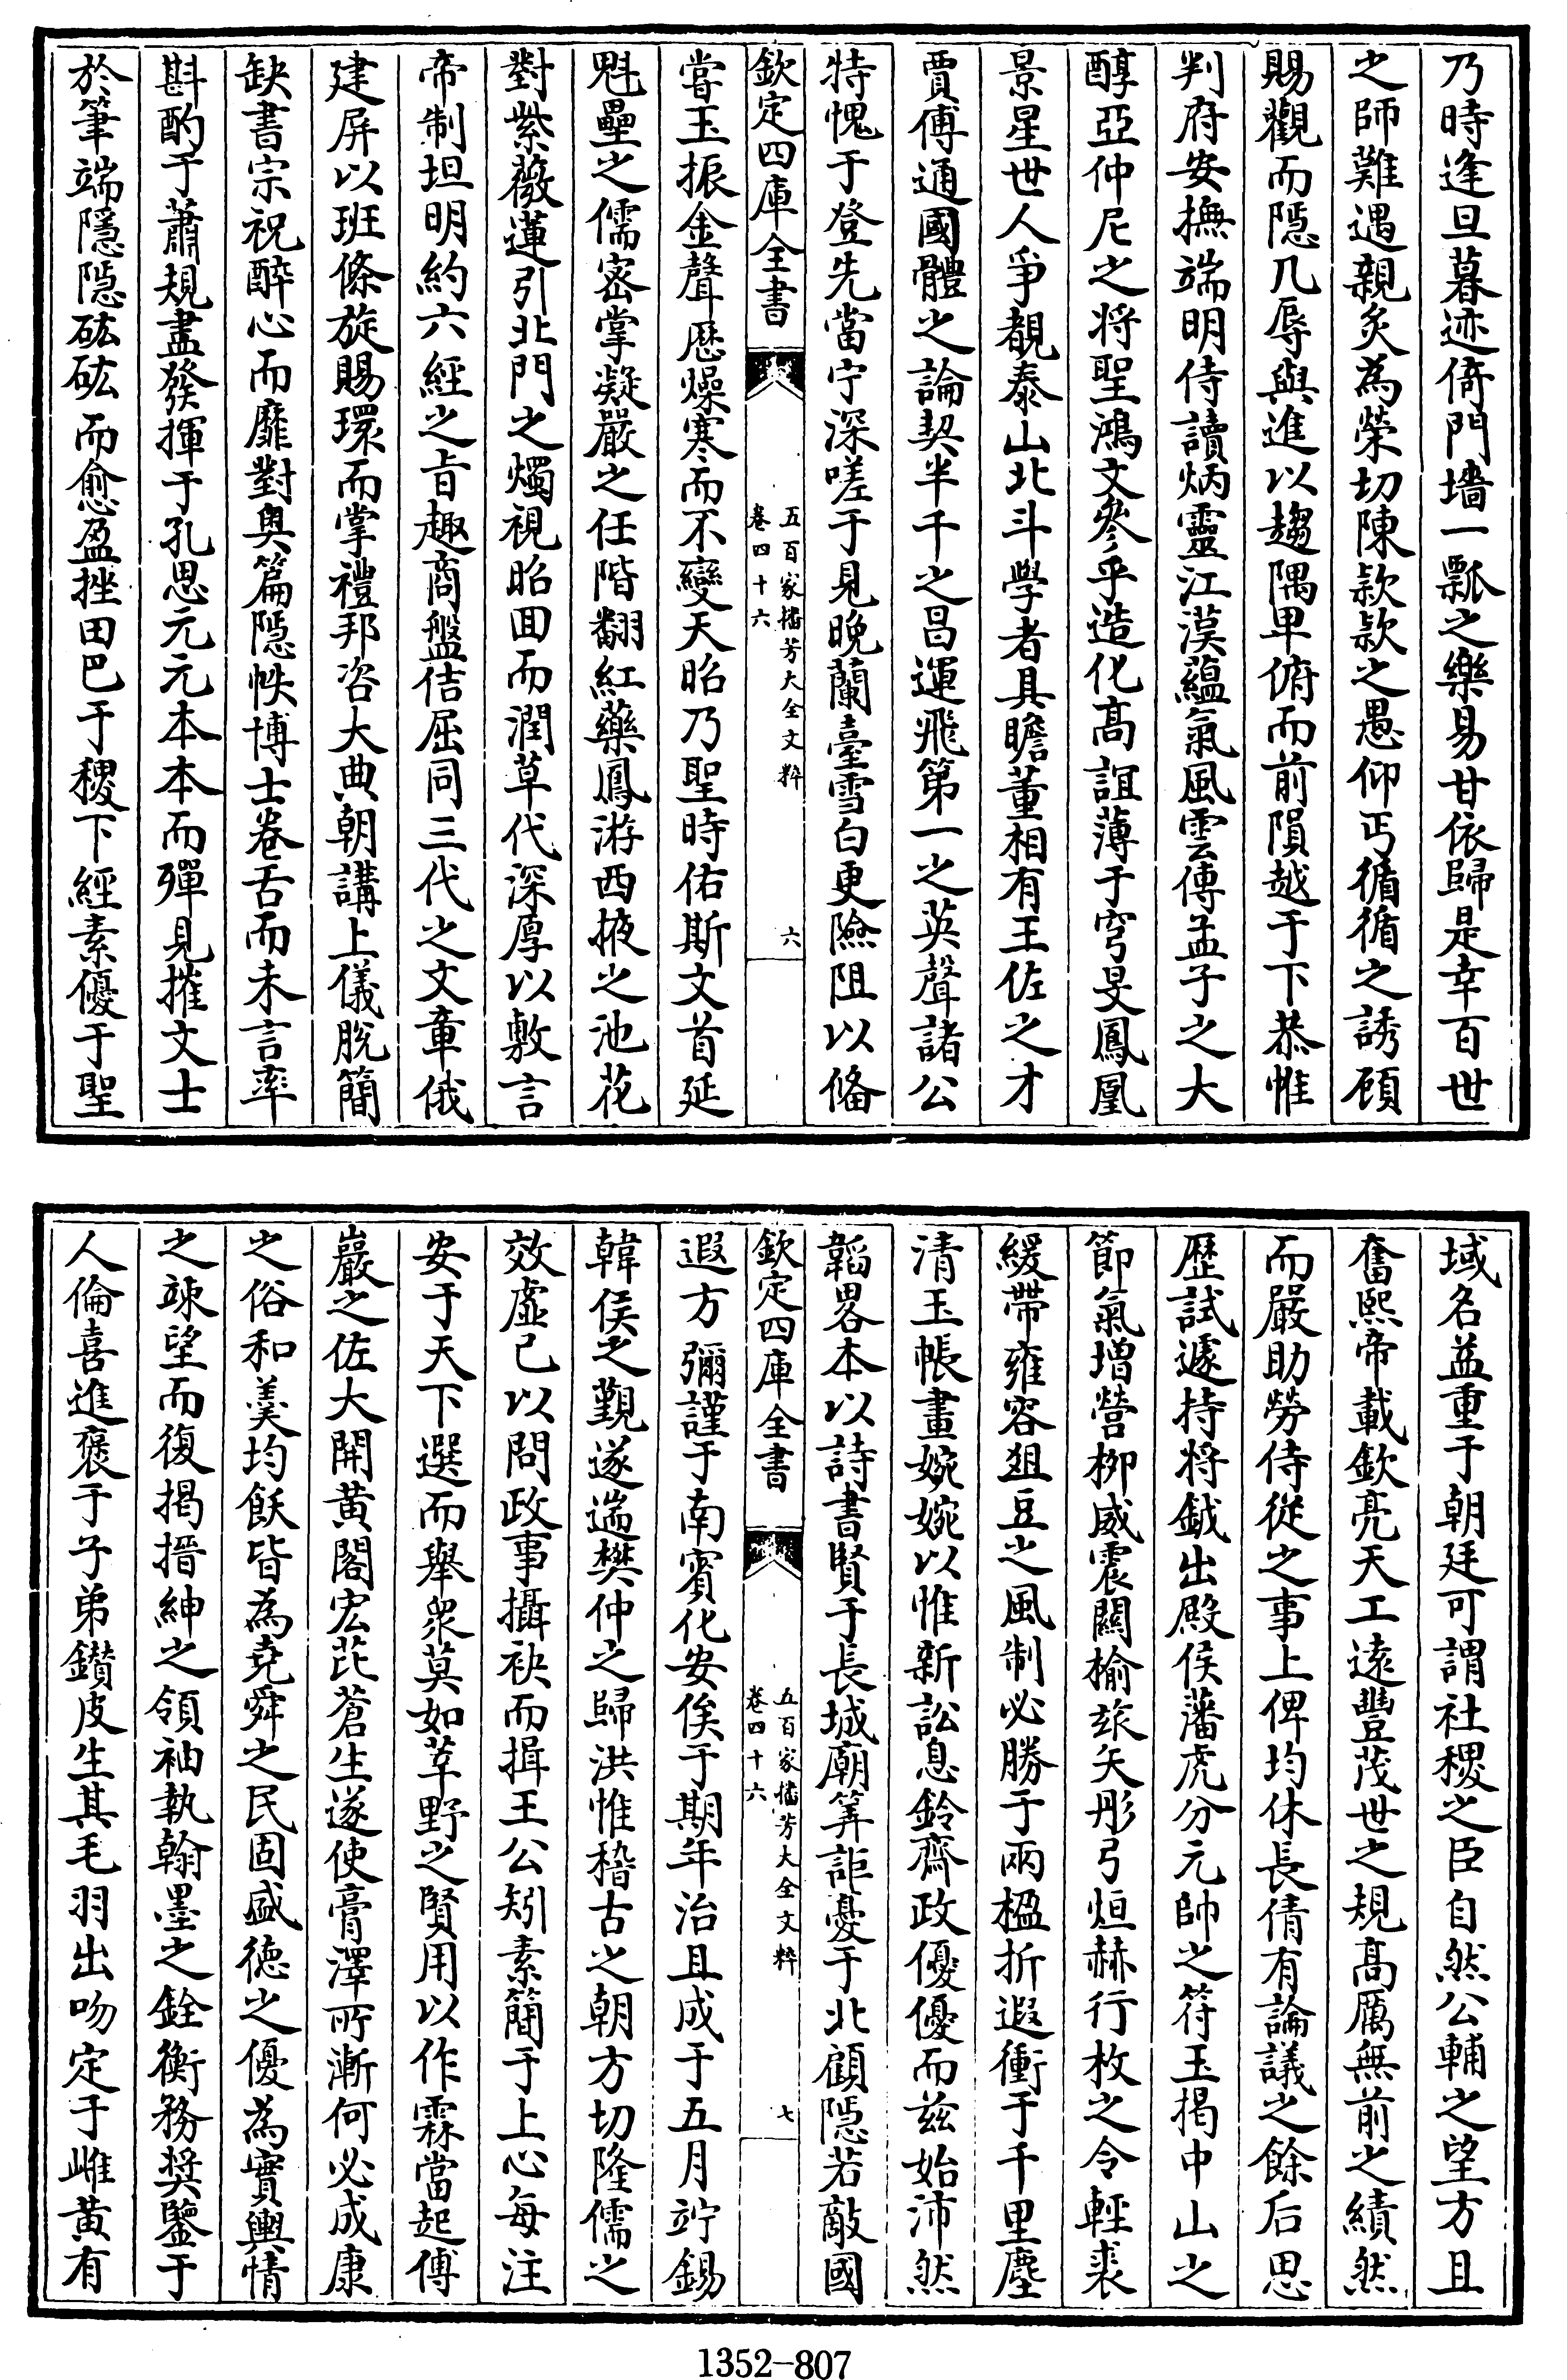 乃時逢旦暮迹倚門墻一瓢之樂易甘依歸是幸百世
之師難遇親炙為榮切陳款款之愚仰丐循循之誘顧
賜觀而隠几辱與進以趨隅卑俯而前隕越于下恭惟
判府安撫端明侍讀炳靈江漢蘊氣風雲傳孟子之大
醇亞仲尼之将聖鴻文參乎造化高誼薄于穹旻鳳凰
景星世人爭覩泰山北斗學者具瞻董相有王佐之才
賈傅通國體之論契半千之昌運飛第一之英聲諸公
特愧于登先當宁深嗟于見晩蘭臺雪白更險阻以偹
欽定四庫全書
五百家播芳大全文粹
卷四十六
六
嘗玉振金聲厯燥寒而不變天昭乃聖時佑斯文首延
魁壘之儒宻掌凝嚴之任階翻紅藥鳳游西掖之池花
對紫薇蓮引北門之燭視昭回而潤草代深厚以敷言
帝制坦明約六經之旨趣商盤佶屈同三代之文章俄
建屏以班條旋賜環而掌禮邦咨大典朝講上儀脫簡
缺書宗祝醉心而靡對奥篇隠帙博士卷舌而未言率
斟酌于蕭規盡發揮于孔思元元本本而殫見摧文士
於筆端隱隠砿砿而愈盈挫田巴于稷下經素優于聖
域名益重于朝廷可謂社稷之臣自然公輔之望方且
奮熙帝載欽亮天工逺豐茂世之規高厲無前之績然
而嚴助勞侍從之事上俾均休長倩有論議之餘后思
歴試遽持将鉞出殿侯藩虎分元帥之符玉掲中山之
節氣增營柳威震關榆旅矢彤弓烜赫行枚之令輕裘
緩帶雍容爼豆之風制必勝于兩楹折遐衝于千里塵
清玉帳畫婉婉以惟新訟息鈴齋政優優而兹始沛然
韜畧本以詩書賢于長城廟筭詎憂于北顧隠若敵國
欽定四庫全書
五百家播芳大全文粹
卷四十六
七
遐方彌謹于南賓化安俟于期年治且成于五月竚錫
韓侯之覲遂遄樊仲之歸洪惟稽古之朝方切隆儒之
效虚已以問政事攝袂而揖王公矧素簡于上心每注
安于天下選而舉衆莫如莘野之賢用以作霖當起傅
巖之佐大開黄閣宏芘蒼生遂使膏澤所漸何必成康
之俗和羮均飫皆為堯舜之民固盛徳之優為實輿情
之竦望而復掲搢紳之領袖執翰墨之銓衡務奬鑒于
人倫喜進褒于子弟鑚皮生其毛羽出吻定于雌黄有
1352-807